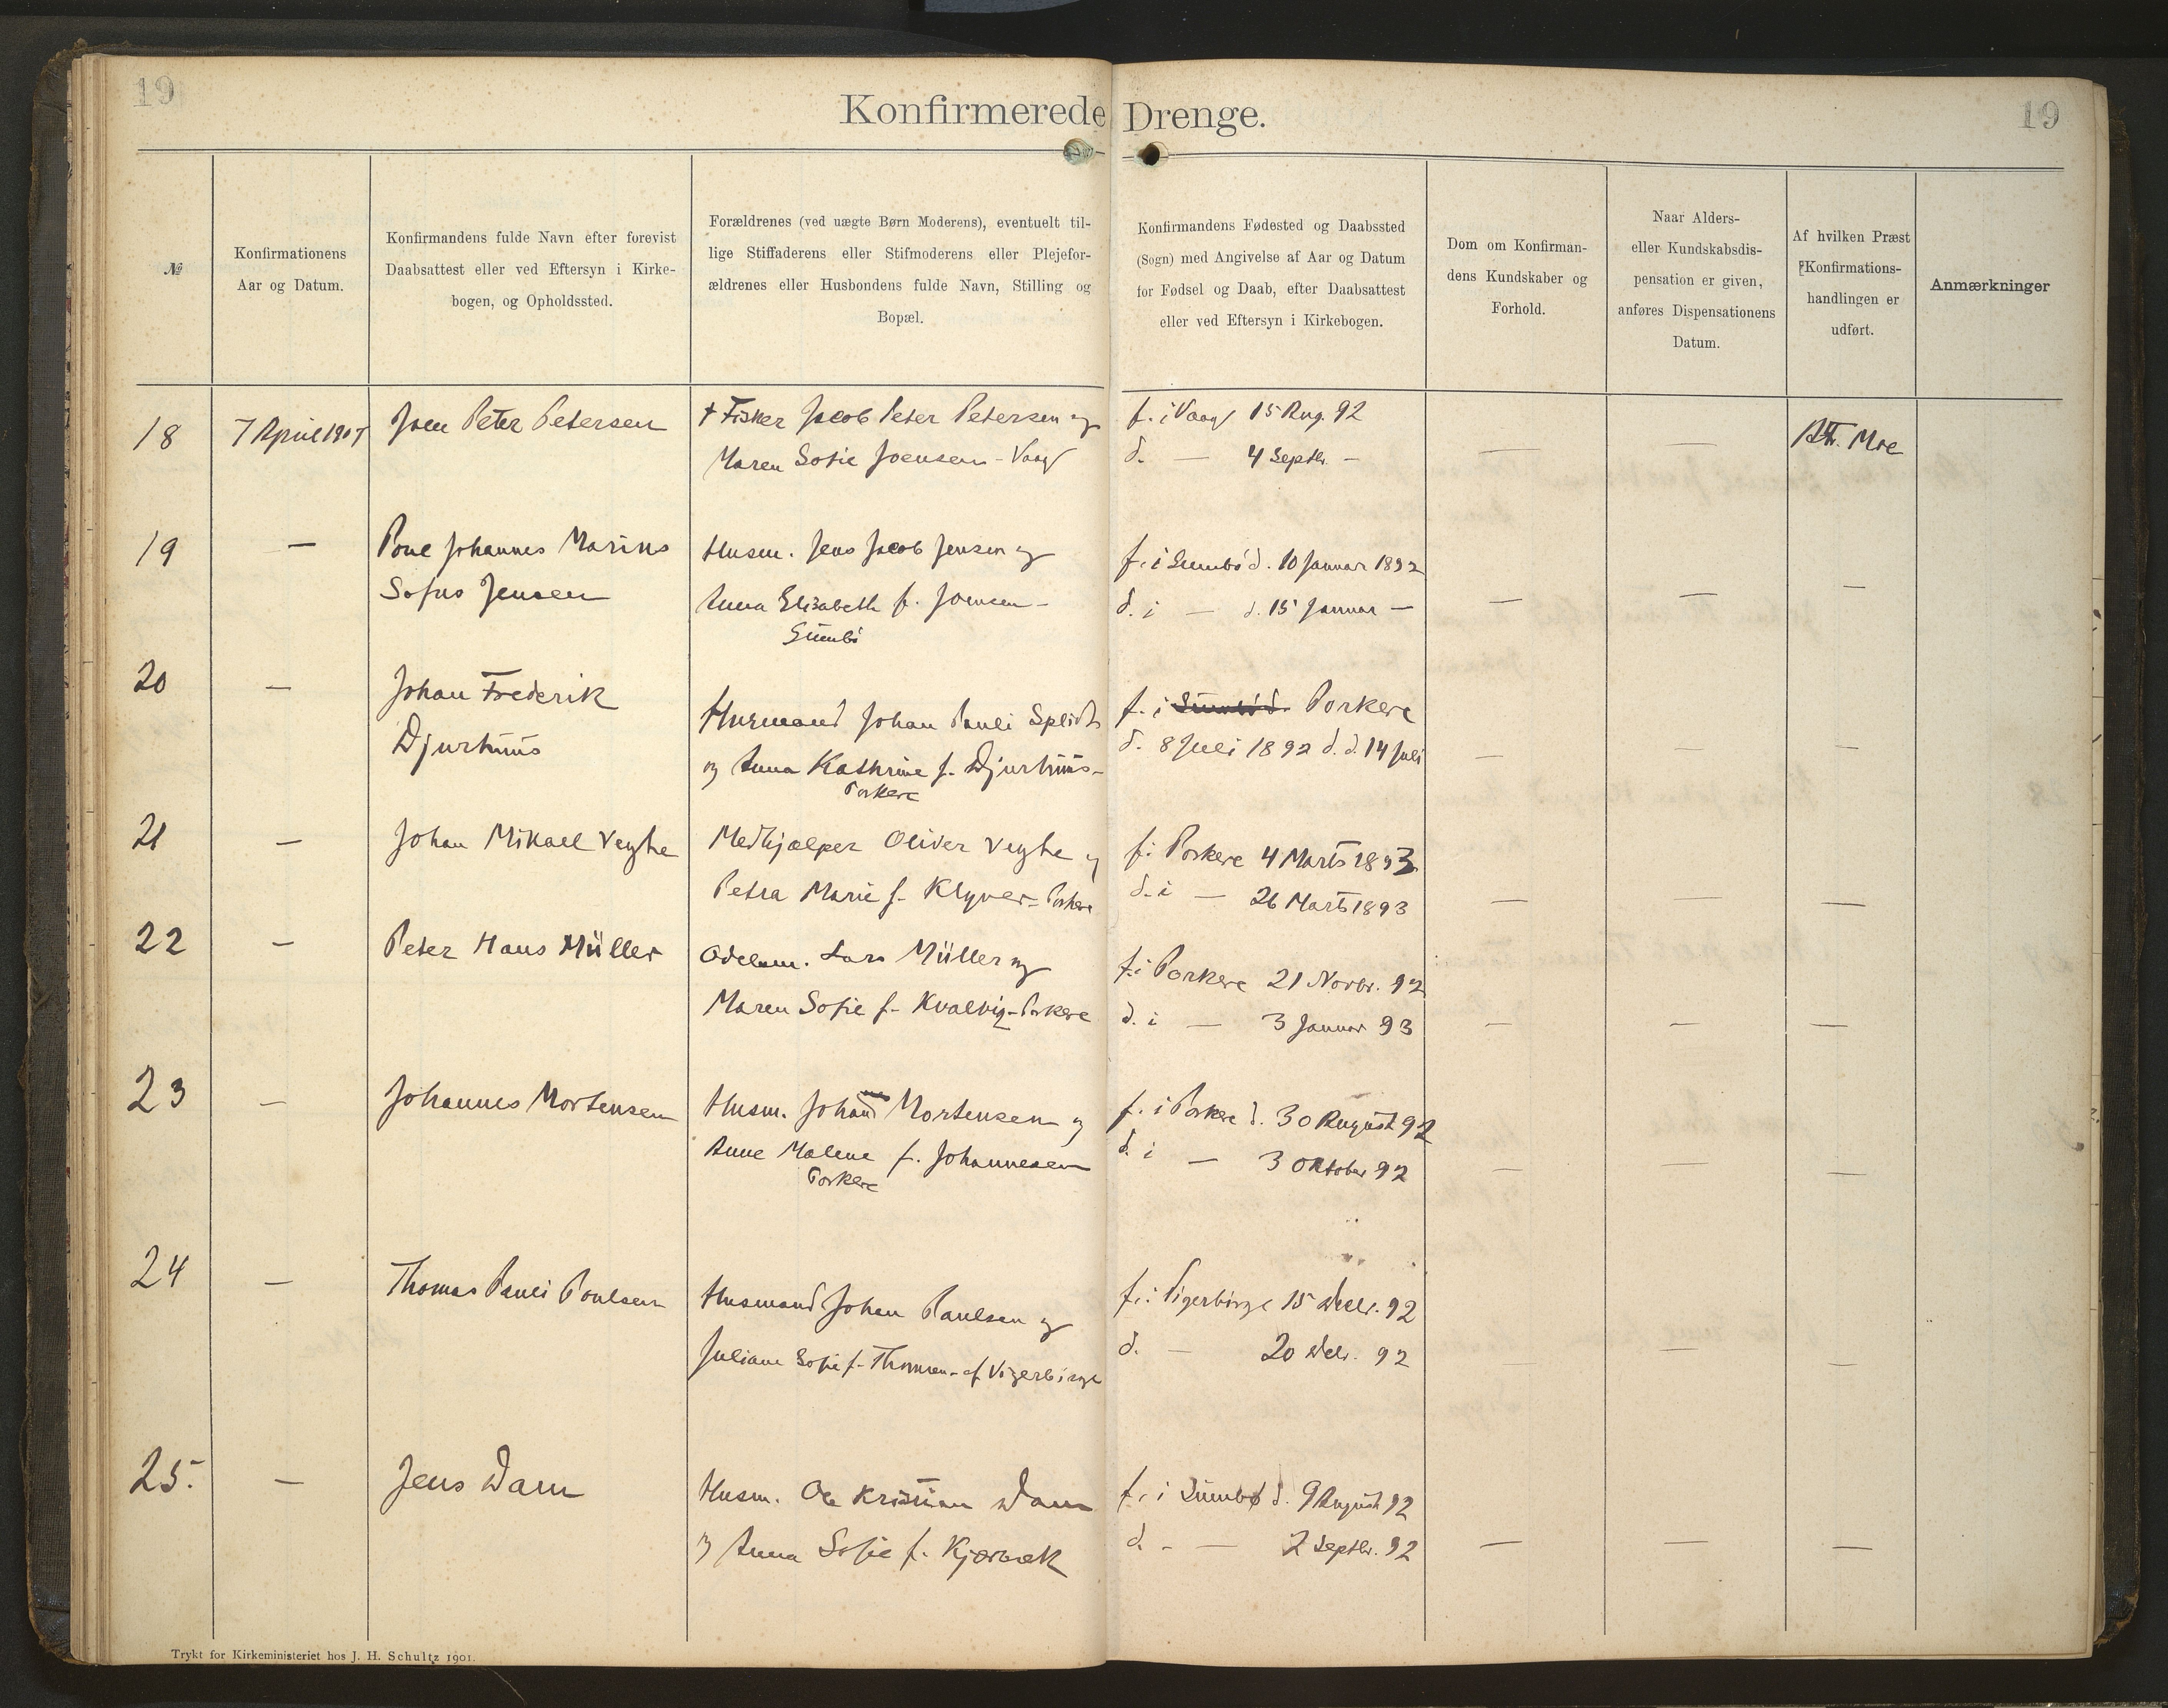 19
Konfirmerede Drenge.
19
№
Konfirmationens
Aar og Datum.
Konfirmandens fulde Navn efter forevist
Daabsattest eller ved Eftersyn i Kirke-
bogen, og Opholdssted.
Forældrenes (ved uægte Børn Moderens), eventuelt til-
lige Stiffaderens eller Stifmoderens eller Plejefor-
ældrenes eller Husbondens fulde Navn, Stilling og
Bopæl.
Konfirmandens Fødested og Daabssted
(Sogn) med Angivelse af Aar og Datum
for Fødsel og Daab, efter Daabsattest
eller ved Eftersyn i Kirkebogen.
Dom om Konfirman-
dens Kundskaber og
Forhold.
Naar Alders-
eller Kundskabsdis-
pensation er given,
anføres Dispensationens
Datum.
Af hvilken Præst
Konfirmations-
handlingen er
udført.
Anmærkninger
18
7 April 1907
Joen Peter Petersen
† Fisker Jacob Peter Petersen og
Maren Sofie Joensen - Vaag
f. i Vaag 15 Aug. 92
d. — 4 Septbr. —
—
—
Moe
19
—
Poul Johannes Marius
Sofus Jensen
Husm. Jens Jacob Jensen og
Anna Elisabeth f. Joensen -
Sumbö
f. i Sumbö d. 10 Januar 1892
d. i — d. 15 Januar —
—
—
—
20
—
Johan Frederik
Djurhuus
Husmand Johan Pauli Splidt
og Anna Kathrine f. Djurhuus -
Porkere
f. i Sumbö d. Porkere
d. 8 Juli 1892 d. d. 14 Juli
—
—
—
21
—
Johan Mikael Veyhe
Medhjælper Oliver Veyhe og
Petra Marie f. Klyver - Porkere
f. i Porkere 4 Marts 1893
d. i — 26 Marts 1893
—
—
—
22
—
Peter Hans Müller
Odelsm. Lars Müller og
Maren Sofie f. Kvalvig - Porkere
f. i Porkere 21 Novbr. 92
d. i — 3 Januar 93
—
—
—
23
—
Johannes Mortensen
Husm. Johan Mortensen og
Anne Malene f. Johannesen
Porkere
f. i Porkere d. 30 August 92
d. i — 3 Oktober 92
—
—
—
24
—
Thomas Pauli Poulsen
Husmand Johan Paulsen og
Juliane Sofie f. Thomsen - af Vigerbirge
f. i Vigerbirge 15 Decbr. 92
d. — 20 Decbr. 92
—
—
25.
—
Jens Dam
Husm. Ole Kristian Dam
og Anna Sofie f. Kjærbæk
f. i Sumbø d. 9 August 92
d. - — 2 Septbr. 92
—
—
—
Trykt for Kirkeministeriet hos J. H. Schultz 1901.